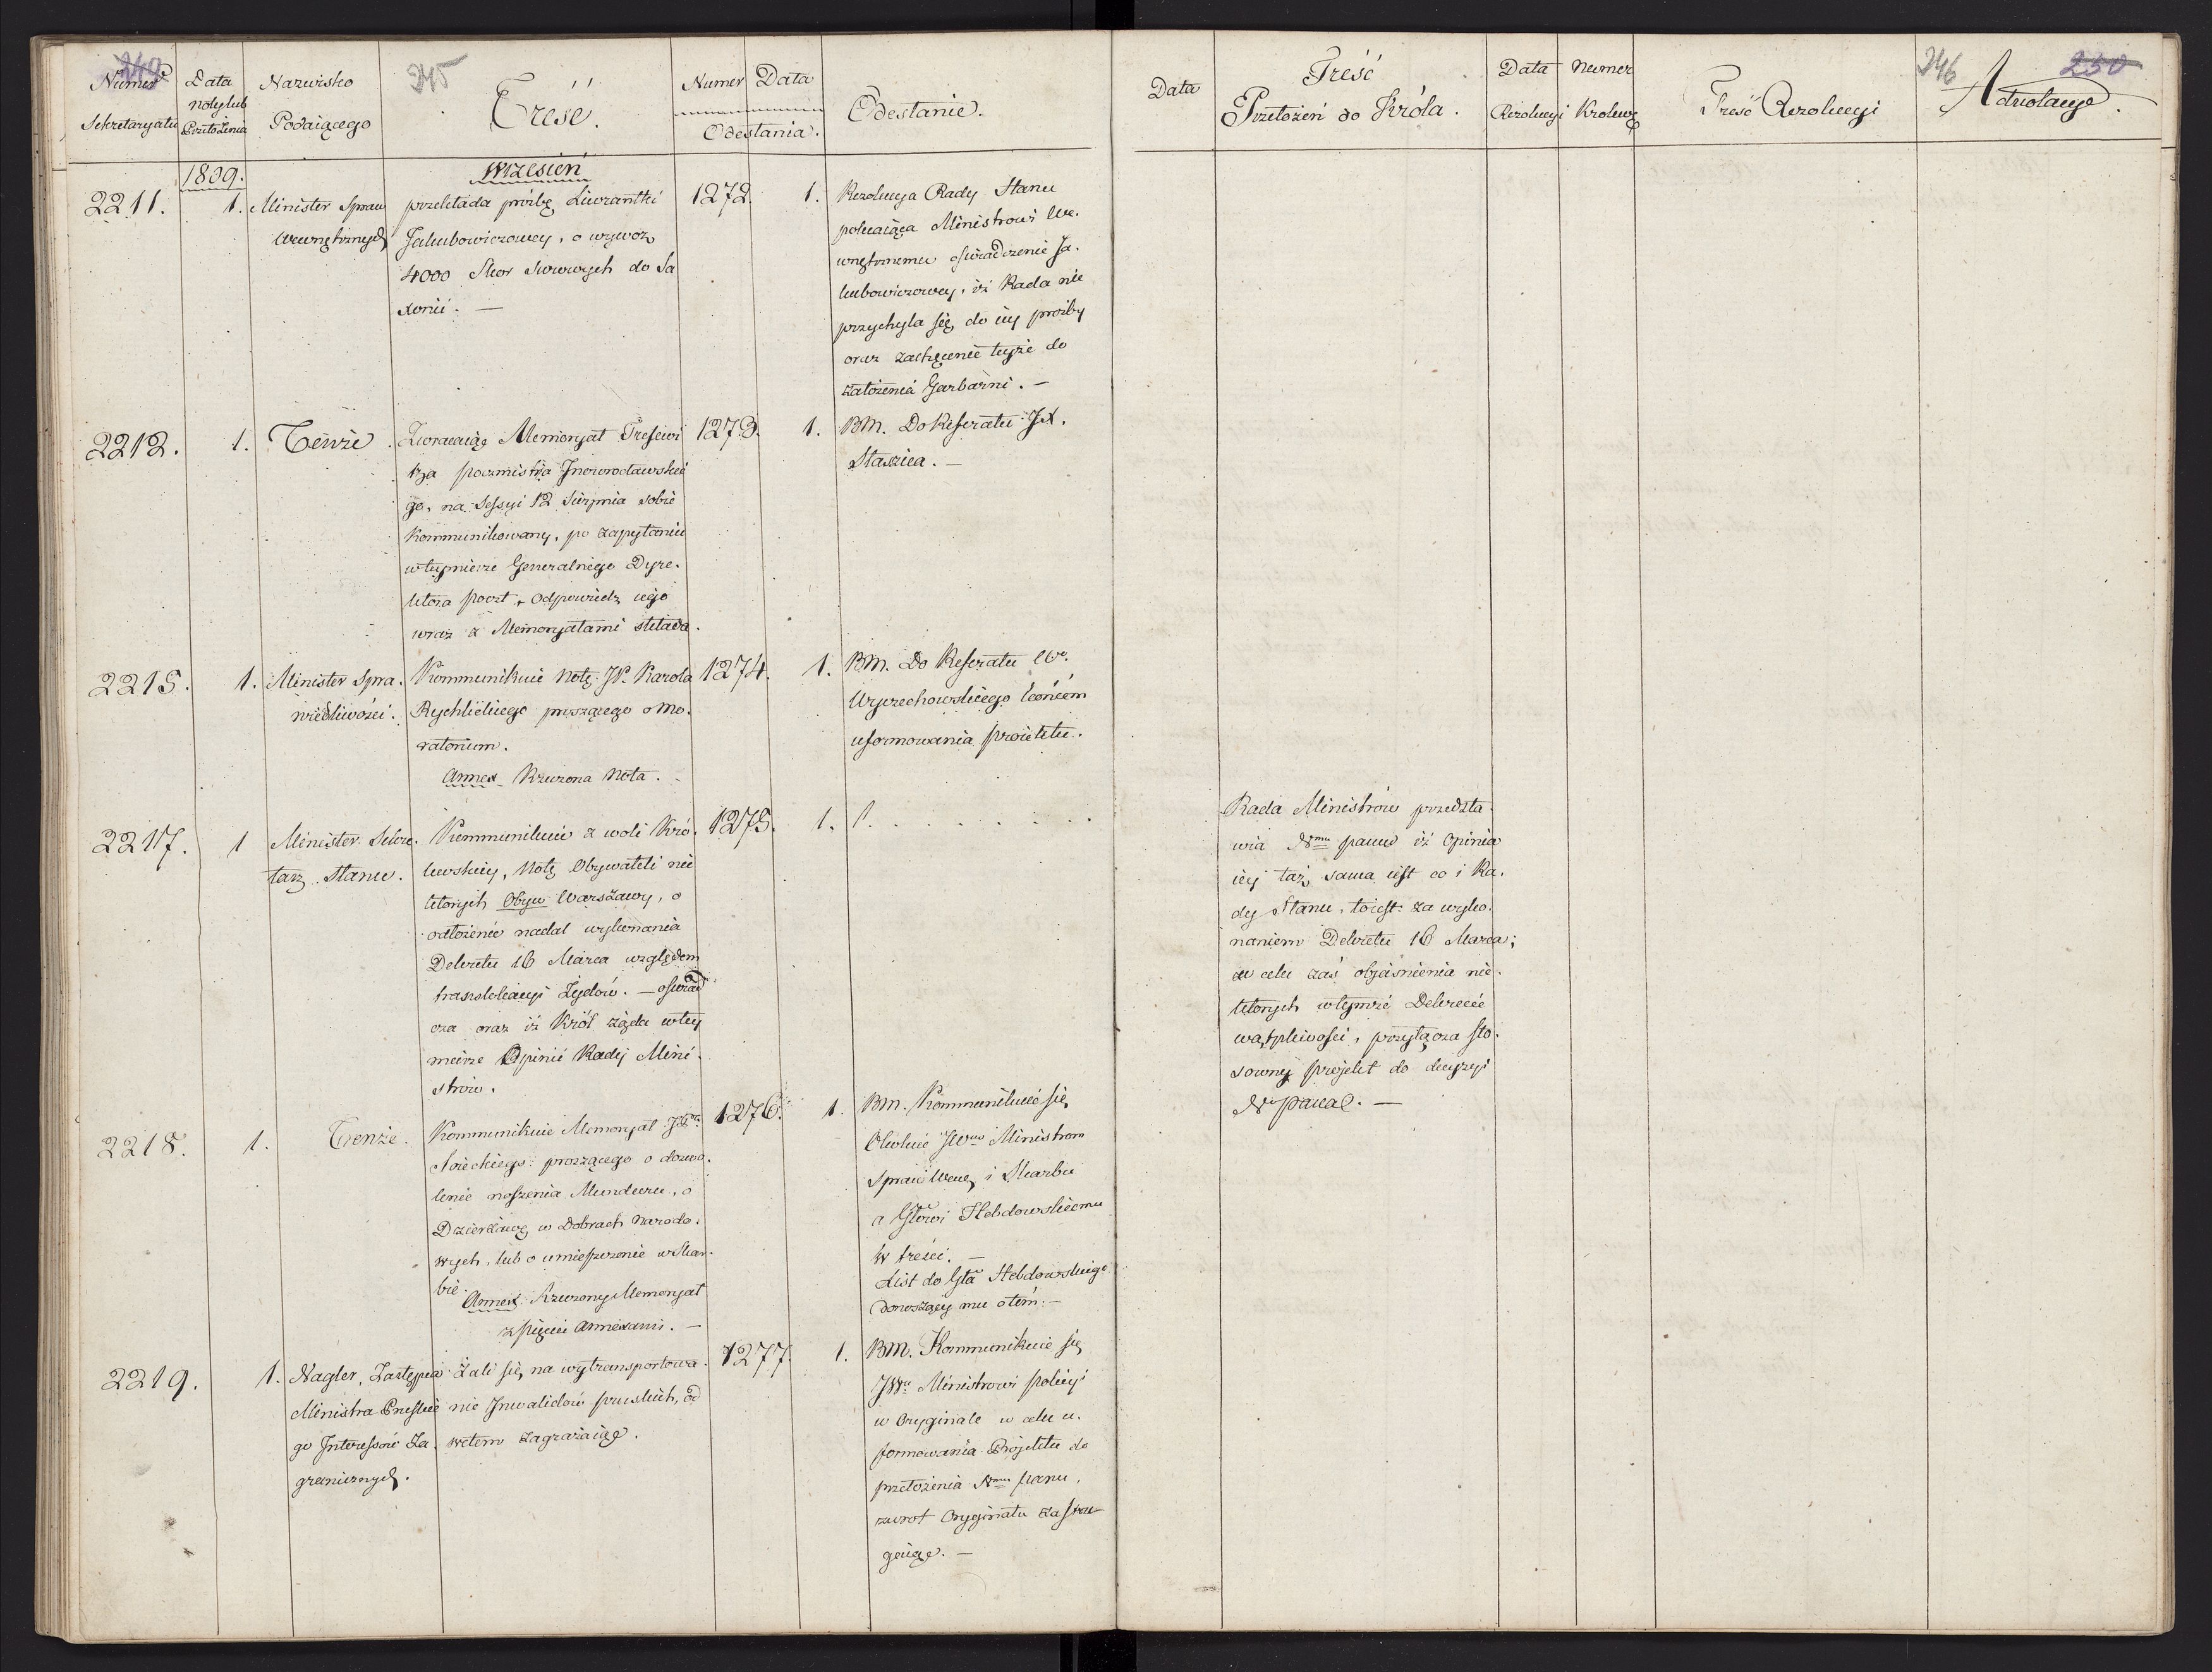 249
Numer
Sekretaryatu
Data
noty lub
Przełożenia
Nazwisko
Podaiącego
245
Treść.
Numer Data
Odesłania.
Odesłanie.
Data
Treść
Przełożeń do Króla.
Data Numer
Rezolucyi Królewey
Treść Rezolucyi
246
250
Adnotacye.
1809.
Wrzesień
2211. 1. Minister Spraw
Wewnętrznych
przekłada prośbę Liwrantki
Jakubowiczowey, o wywóz
4000 Skor Surowych do Sa
xonii. —
1272. 1.
Rezolucya Rady Stanu
polecaiąca Ministrowi We.
wnętrznemu oświadczenie Ja.
kubowiczowey, iż Rada nie
przychyla się do iey prośby
oraz zachęcenie teyże do
założenia Garbarni. —
2212. 1. Tenże.
Zwracaiąc Memoryał
Poczmistrza Inowrocławskie
go, na Sessyi 12 Sierpnia sobie
kommunikowany, po zapytaniu
w teymierze Generalnego Dyre.
ktora poczt, odpowiedz iego
wraz z Memoryałami składa.
1273. 1.
BM. Do Referatu JX.
Staszica. —
2215. 1. Minister Spra.
wiedliwości.
Kommunikuie Notę JP. Karola
Rychlickiego proszącego o Mo.
ratorium.
Annex Rzeczona Nota. -
1274. 1.
BM. Do Referatu Wo.
Wyczechowskiego końcem
uformowania proiektu.
2217. 1 Minister Sekre.
tarz Stanu.
Kommunikuie z woli Kró.
lewskiey, Notę Obywateli nie
których Obyw Warszawy, o
odłożenie nadal wykonania
Dekretu 16 Marca względem
translokacyi Żydów. — oświad
cza oraz iż Król żąda w tey
mierze Opinii Rady Mini.
strów.
1275. 1. 1. . . . . . . .
Rada Ministrów przedsta.
wia Nmu panu iż Opinia
iey taż sama iest co i Ra.
dy Stanu, to iest: za wyko.
naniem Dekretu 16 Marca;
w celu zaś obiaśnienia nie.
których w tymże Dekrecie
wątpliwości, przyłącza sto.
sowny projekt do decyzyi
N. pana. —
2218. 1. Tenże.
Kommunikuie Memoryał
proszącego o dozwo.
lenie noszenia Munduru, o
Dzierżawę w Dobrach Narodo.
wych, lub o umieszczenie w Skar.
bie.
Annex Rzeczony Memoryał
z pięciu Annexami. —
1276. 1.
BM. Kommunikuie się
JWm Ministrom
Spraw Wew, i Skarbu
a Głowi Hebdowskiemu
w treści. —
List do Gła Hebdowskiego
donoszący mu o tém. —
2219. 1. Nagler, Zastępca
Ministra Pruskie
go Interessów Za
granicznych.
Żali się, na wytransportowa.
nie Inwalidów pruskich, od
wetem zagrażaiąc.
1277. 1.
BM. Kommunikuie się
JWu Ministrowi policyi
w Oryginale w celu u.
formowania Projektu do
przełożenia Nmu panu,
zwrot Oryginału zastrze
gaiąc. —